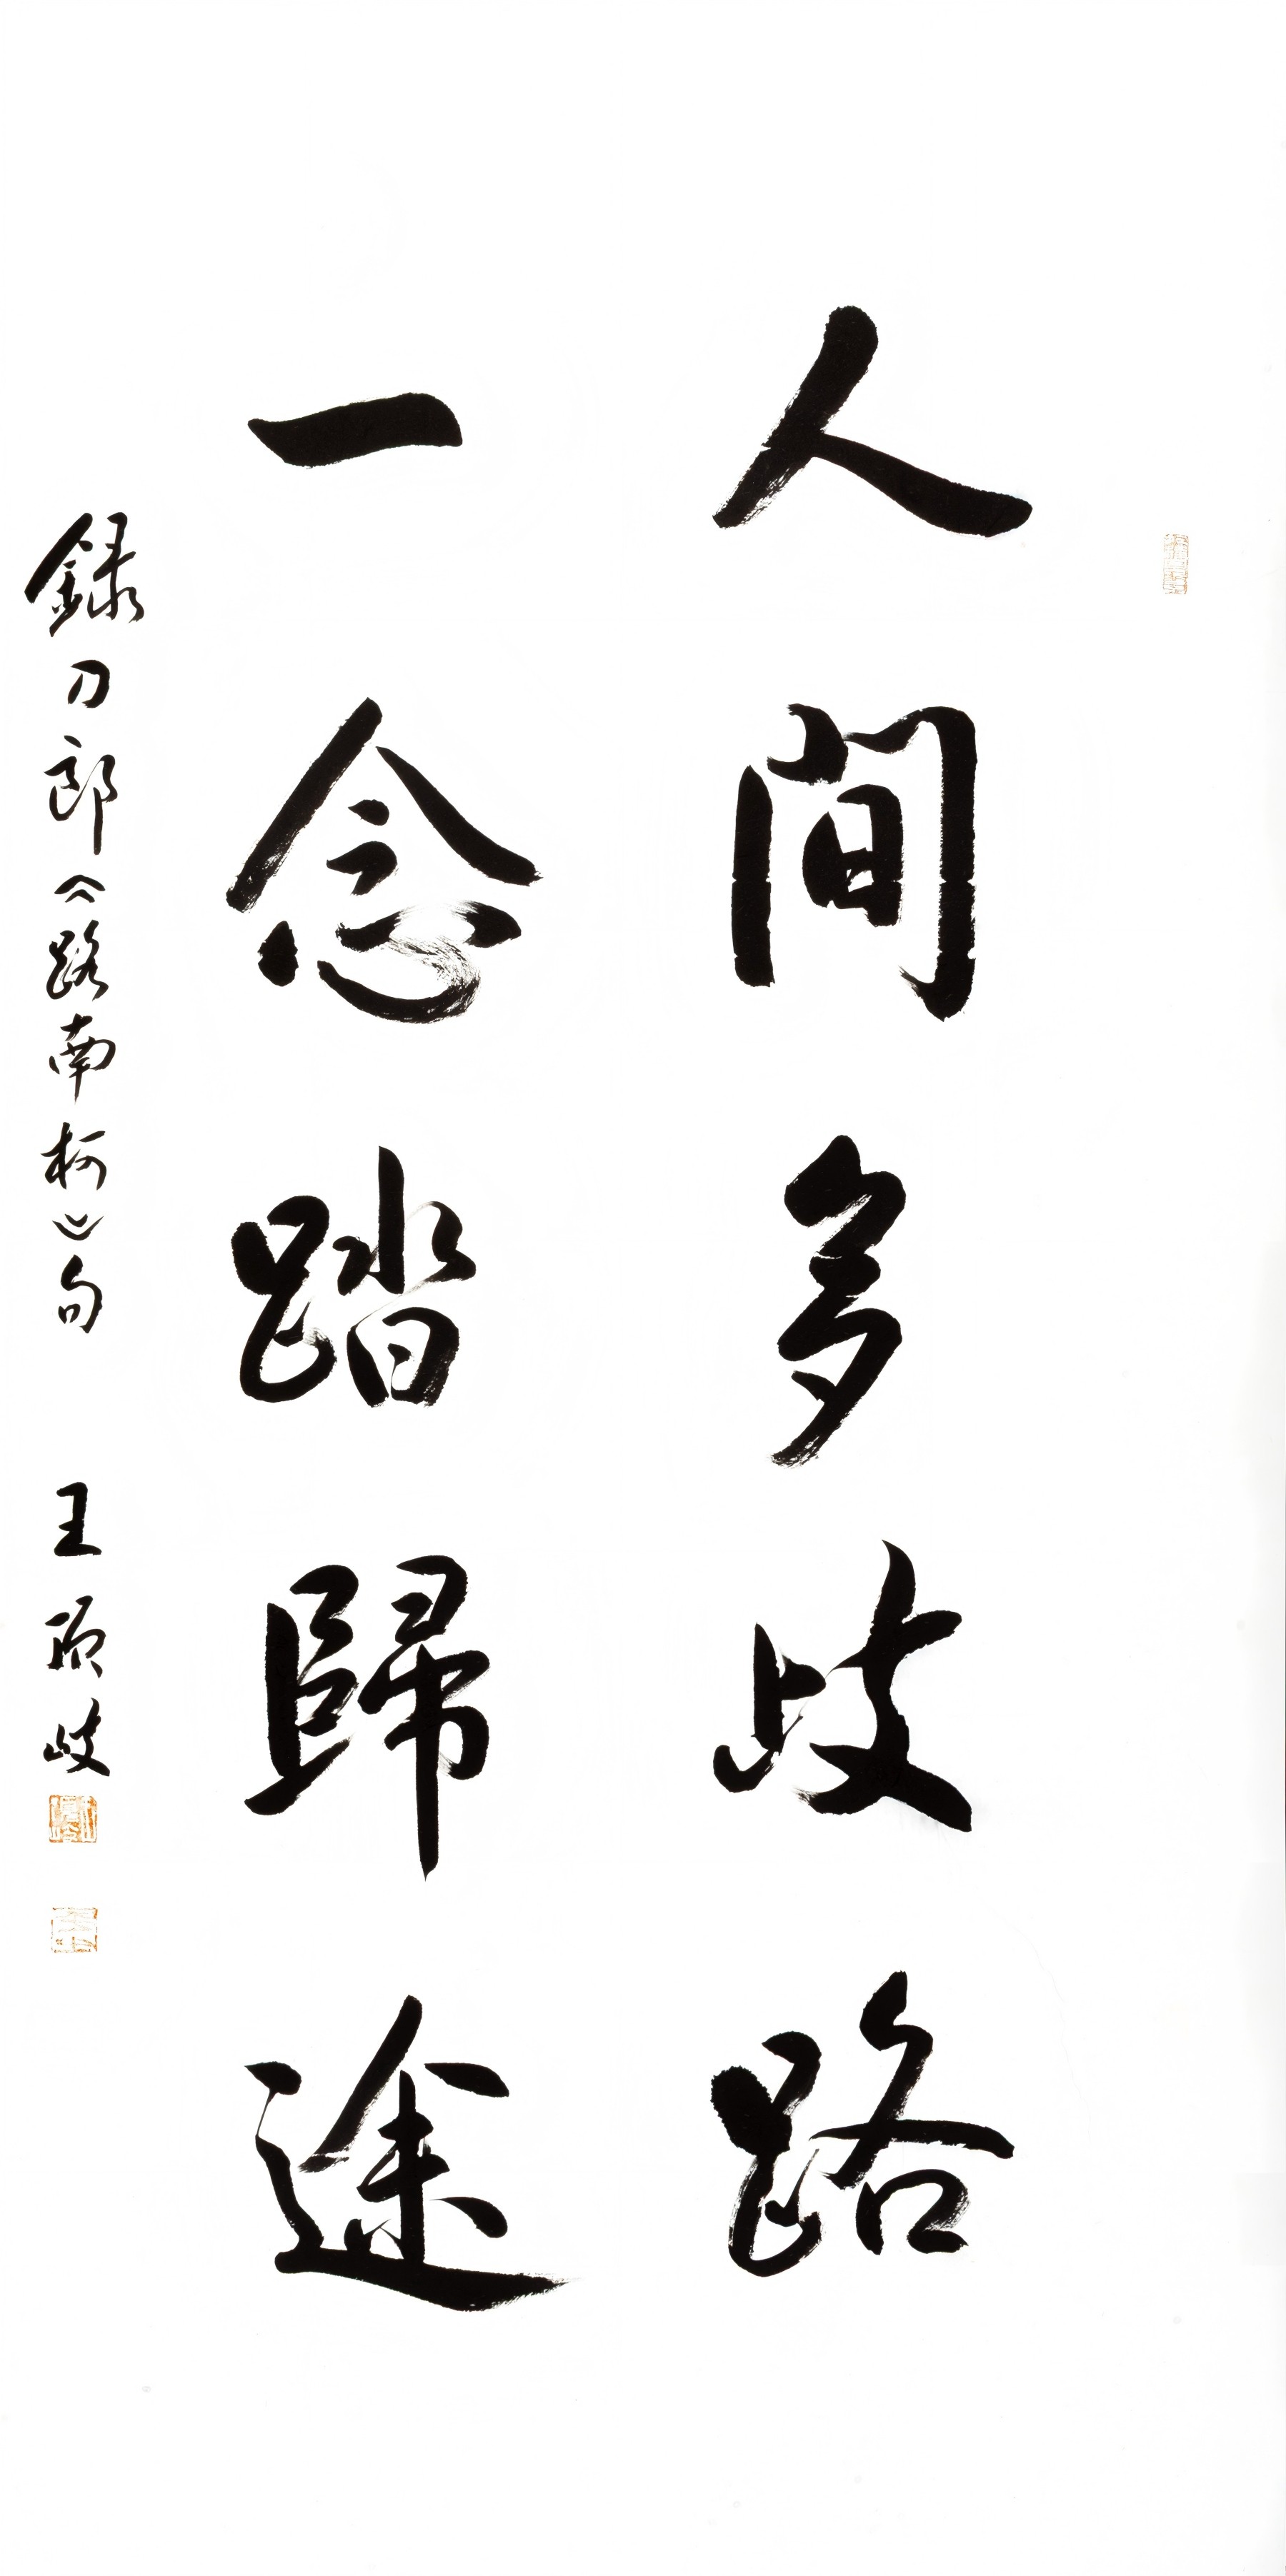 人間多歧路
一念踏歸途
録刀郎《路南柯》句 王頂歧